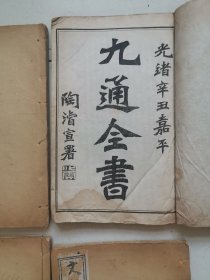 光緒辛丑嘉平
九通全書
陶濬宣署
文